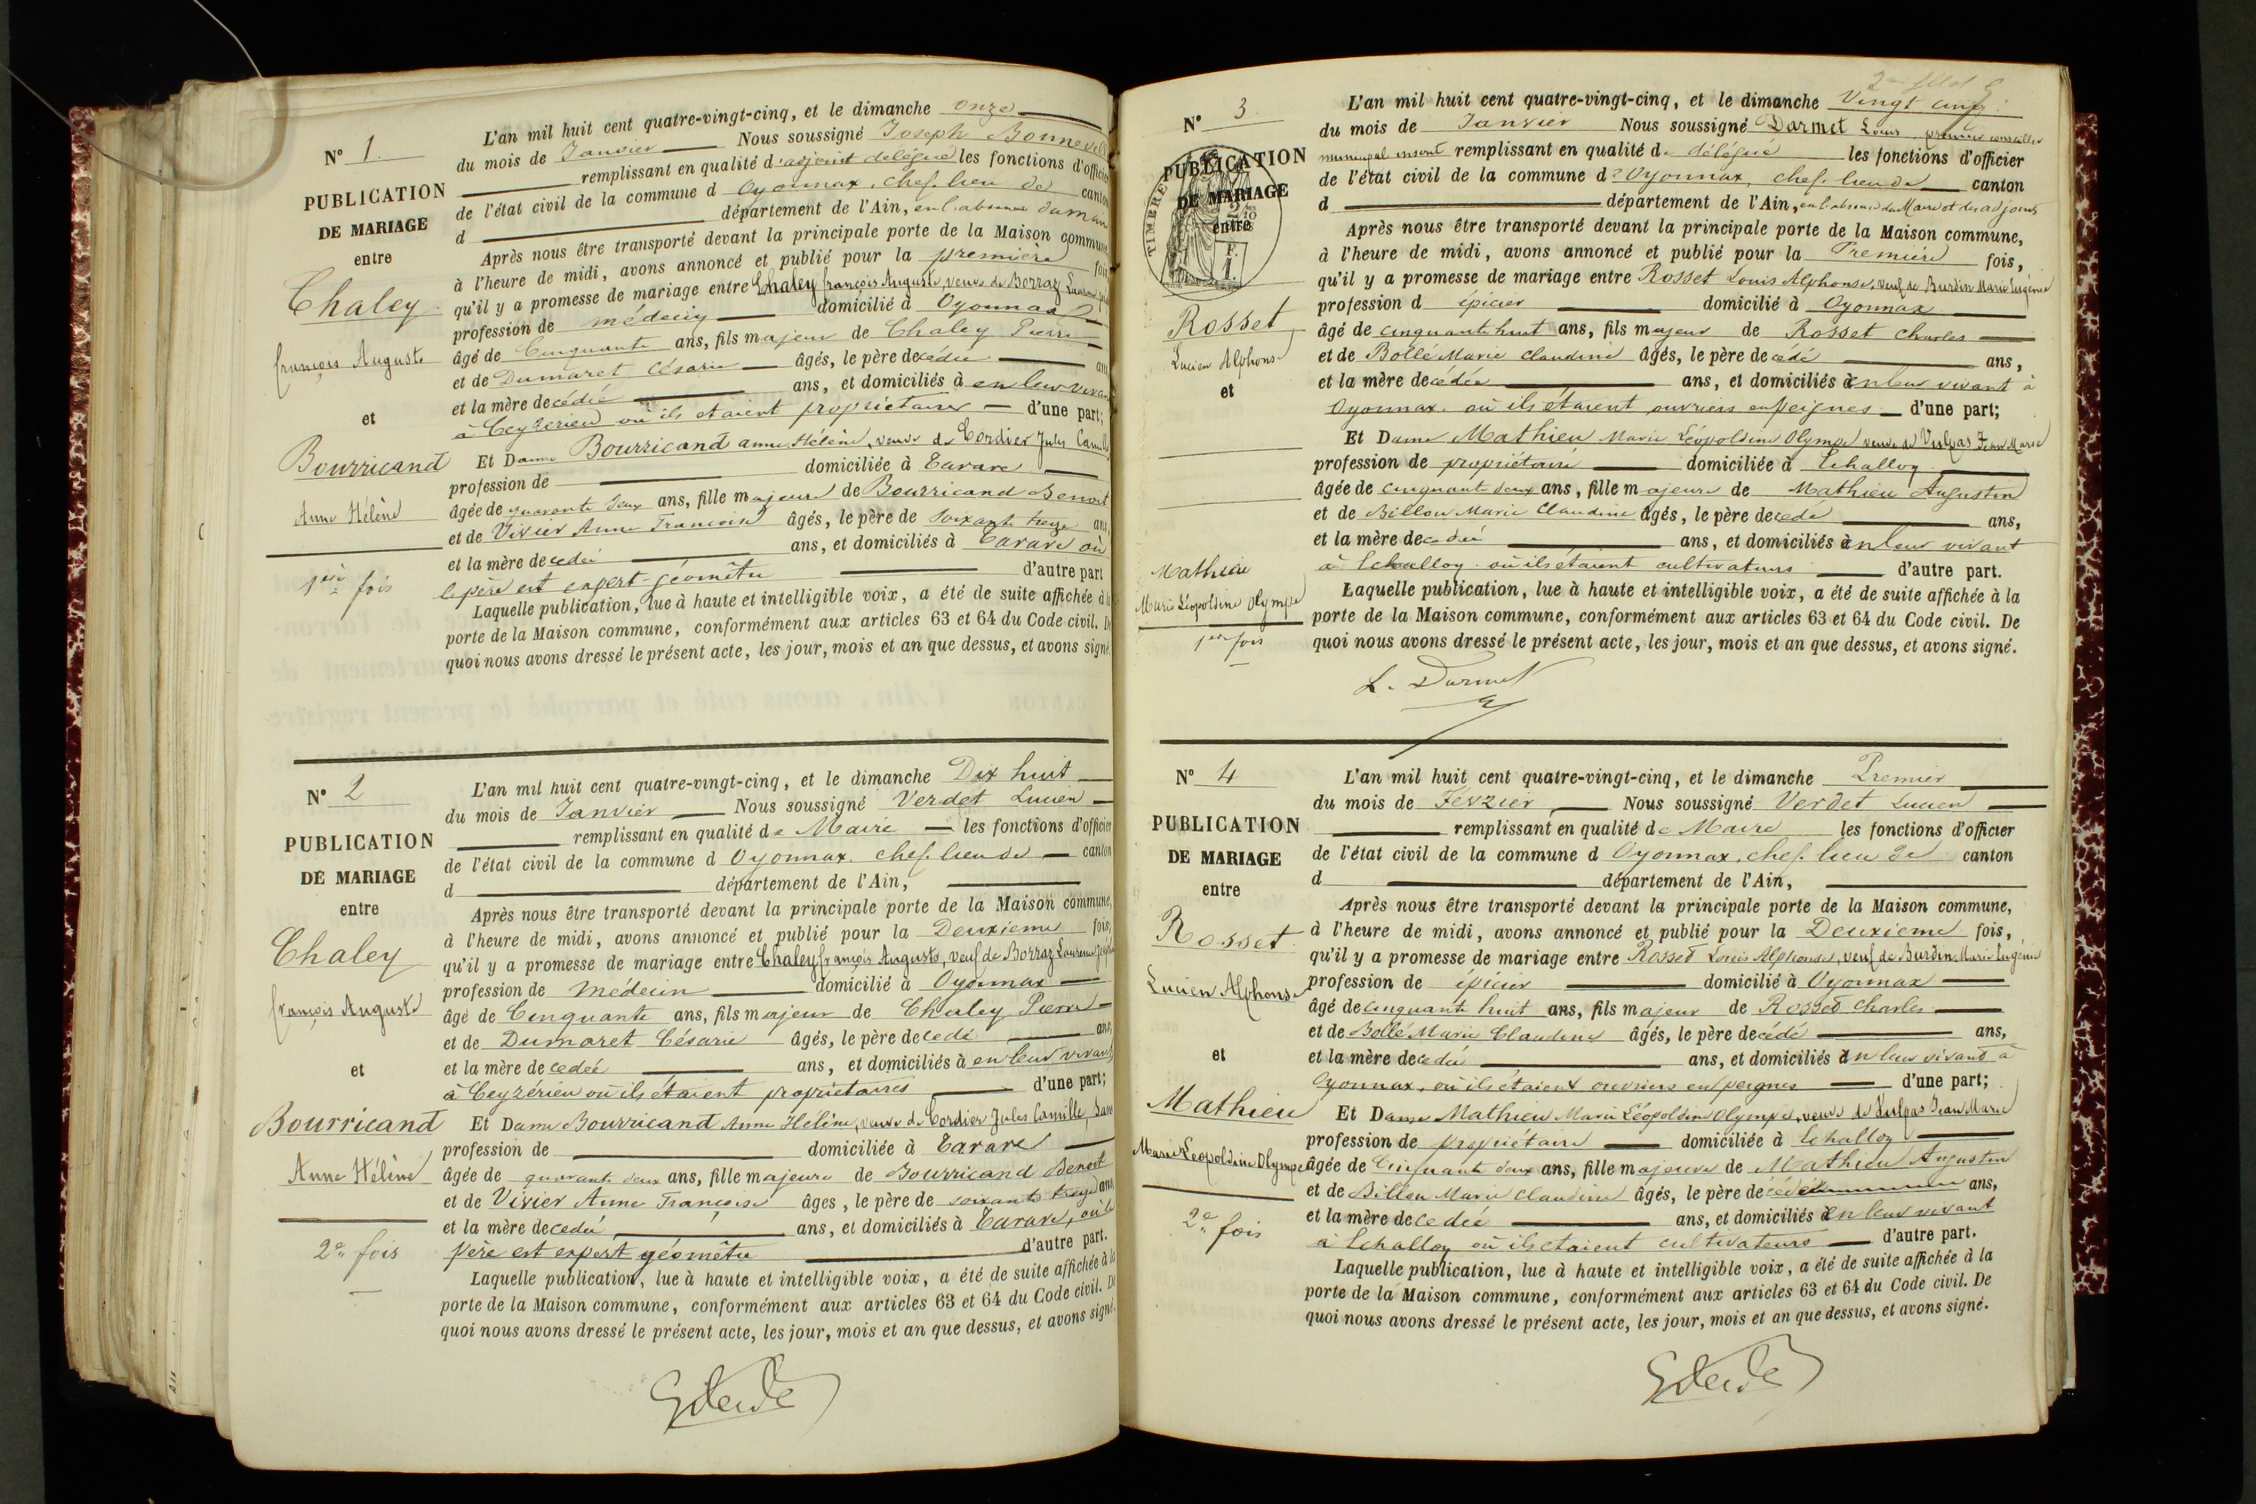 N° 1.
PUBLICATION
DE MARIAGE
entre
Chaley
françois Auguste
et
Bourricand
Anne Hélène
1ère fois
L'an mil huit cent quatre-vingt-cinq, et le dimanche onze
du mois de Janvier Nous soussigné Joseph
remplissant en qualité d'adjoint délégué les fonctions d'officier
de l'état civil de la commune d Oyonnax, chef-lieu de canton
d département de l'Ain, en l'absence du maire
Après nous être transporté devant la principale porte de la Maison commune,
à l'heure de midi, avons annoncé et publié pour la première fois
qu'il y a promesse de mariage entre Chaley françois Auguste, veuf de Borraz
profession de médecin domicilié à Oyonnax
âgé de Cinquante ans, fils majeur de Chaley Pierre
et de Dumaret Césarie âgés, le père décédé ans
et la mère décédée ans, et domiciliés à en leur vivant
à Ceyzérieu où ils étaient propriétaires d'une part;
Et Dame Bourricand anne Hélène, veuve de Cordier Jules Camille
profession de domiciliée à Tarare
âgée de quarante deux ans, fille majeure de Bourricand Benoit
et de Vivier Anne Françoise âgés, le père de soixante treize ans,
et la mère décédée ans, et domiciliés à Tarare où
le père est expert-géomètre d'autre part
Laquelle publication, lue à haute et intelligible voix, a été de suite affichée à la
porte de la Maison commune, conformément aux articles 63 et 64 du Code civil. De
quoi nous avons dressé le présent acte, les jour, mois et an que dessus, et avons signé.
N° 2
PUBLICATION
DE MARIAGE
entre
Chaley
françois Auguste
et
Bourricand
Anne Hélène
2e fois
L'an mil huit cent quatre-vingt-cinq, et le dimanche Dix huit
du mois de Janvier Nous soussigné Verdet Lucien
remplissant en qualité de Maire les fonctions d'officier
de l'état civil de la commune d Oyonnax, chef-lieu de canton
d département de l'Ain,
Après nous être transporté devant la principale porte de la Maison commune,
à l'heure de midi, avons annoncé et publié pour la Deuxième fois,
qu'il y a promesse de mariage entre Chaley françois Auguste, veuf de Borraz Laurence
profession de médecin domicilié à Oyonnax
âgé de Cinquante ans, fils majeur de Chaley Pierre
et de Dumaret Césarie âgés, le père décédé ans,
et la mère décédée ans, et domiciliés à en leur vivant
à Ceyzérieu où ils étaient propriétaires d'une part;
Et Dame Bourricand Anne Hélène, veuve de Cordier Jules Camille, Sans
profession de domiciliée à Tarare
âgée de quarante deux ans, fille majeure de Bourricand Benoit
et de Vivier Anne Françoise âgés, le père de soixante treize ans,
et la mère décédée, ans, et domiciliés à Tarare, où le
père est expert géomètre d'autre part.
Laquelle publication, lue à haute et intelligible voix, a été de suite affichée à la
porte de la Maison commune, conformément aux articles 63 et 64 du Code civil. De
quoi nous avons dressé le présent acte, les jour, mois et an que dessus, et avons signé.
N° 3
PUBLICATION
DE MARIAGE
entre
TIMBRE
Rosset
Lucien Alphonse
et
Mathieu
Marie Léopoldine Olympe
1ère fois
L'an mil huit cent quatre-vingt-cinq, et le dimanche Vingt cinq
du mois de Janvier Nous soussigné Darmet Louis, premier conseiller
municipal inscrit remplissant en qualité de délégué les fonctions d'officier
de l'état civil de la commune d'Oyonnax, chef-lieu de canton
d département de l'Ain, en l'absence du Maire et des adjoints
Après nous être transporté devant la principale porte de la Maison commune,
à l'heure de midi, avons annoncé et publié pour la Première fois,
qu'il y a promesse de mariage entre Rosset Louis Alphonse, veuf de Burdin Marie Eugénie
profession d épicier domicilié à Oyonnax
âgé de cinquante huit ans, fils majeur de Rosset Charles
et de Bollé Marie Claudine âgés, le père décédé ans,
et la mère décédée ans, et domiciliés à en leur vivant à
Oyonnax où ils étaient ouvriers en peignes d'une part;
Et Dame Mathieu Marie Léopoldine Olympe veuve de Vulpas Jean Marie
profession de propriétaire domiciliée à Echallon
âgée de cinquante deux ans, fille majeure de Mathieu Augustin
et de Billon Marie Claudine âgés, le père décédé ans,
et la mère décédée ans, et domiciliés à en leur vivant
à Echallon où ils étaient cultivateurs d'autre part.
Laquelle publication, lue à haute et intelligible voix, a été de suite affichée à la
porte de la Maison commune, conformément aux articles 63 et 64 du Code civil. De
quoi nous avons dressé le présent acte, les jour, mois et an que dessus, et avons signé.
L. Darmet
N° 4
PUBLICATION
DE MARIAGE
entre
Rosset
Lucien Alphonse
et
Mathieu
Marie Léopoldine Olympe
2e fois
L'an mil huit cent quatre-vingt-cinq, et le dimanche Premier
du mois de Février Nous soussigné Verdet Lucien
remplissant en qualité de Maire les fonctions d'officier
de l'état civil de la commune d Oyonnax, chef-lieu de canton
d département de l'Ain,
Après nous être transporté devant la principale porte de la Maison commune,
à l'heure de midi, avons annoncé et publié pour la Deuxième fois,
qu'il y a promesse de mariage entre Rosset Louis Alphonse, veuf de Burdin Marie Eugénie
profession de épicier domicilié à Oyonnax
âgé de cinquante huit ans, fils majeur de Rosset Charles
et de Bollé Marie Claudine âgés, le père décédé ans,
et la mère décédée ans, et domiciliés à en leur vivant à
Oyonnax, où ils étaient ouvriers en peignes d'une part;
Et Dame Mathieu Marie Léopoldine Olympe, veuve de Vulpas Jean Marie
profession de propriétaire domiciliée à Echallon
âgée de Cinquante deux ans, fille majeure de Mathieu Augustin
et de Billon Marie Claudine âgés, le père décédé ans,
et la mère décédée ans, et domiciliés à en leur vivant
à Echallon où ils étaient cultivateurs d'autre part.
Laquelle publication, lue à haute et intelligible voix, a été de suite affichée à la
porte de la Maison commune, conformément aux articles 63 et 64 du Code civil. De
quoi nous avons dressé le présent acte, les jour, mois et an que dessus, et avons signé.